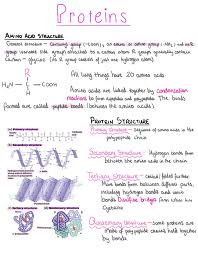 Proteins
AMINO ACID STRUCTURE
General structure - carboxyl group (-COOH), an amine or amino group (-NH2) and an R
group (variable side group) attached to a carbon atom. R groups generally contain
Carbon - glycine (its R group consists of just one hydrogen atom)
R
H2N C COOH
H
All living things have 20 amino acids
Amino acids are linked together by condensation
reactions to form dipeptides and polypeptides. The bonds
formed are called peptide bonds (between the amino acids)
PROTEIN STRUCTURE
Primary Structure - Sequence of amino acids in the
polypeptide chain
Secondary Structure - Hydrogen bonds form
between the amino acids in the chain
Tertiary Structure - coiled/folded further
More bonds form between different parts,
including hydrogen bonds and ionic
bonds. Disulfide bridges form when two
Cysteine
Quaternary Structure - Some proteins are
made of polypeptide chains held together
by bonds